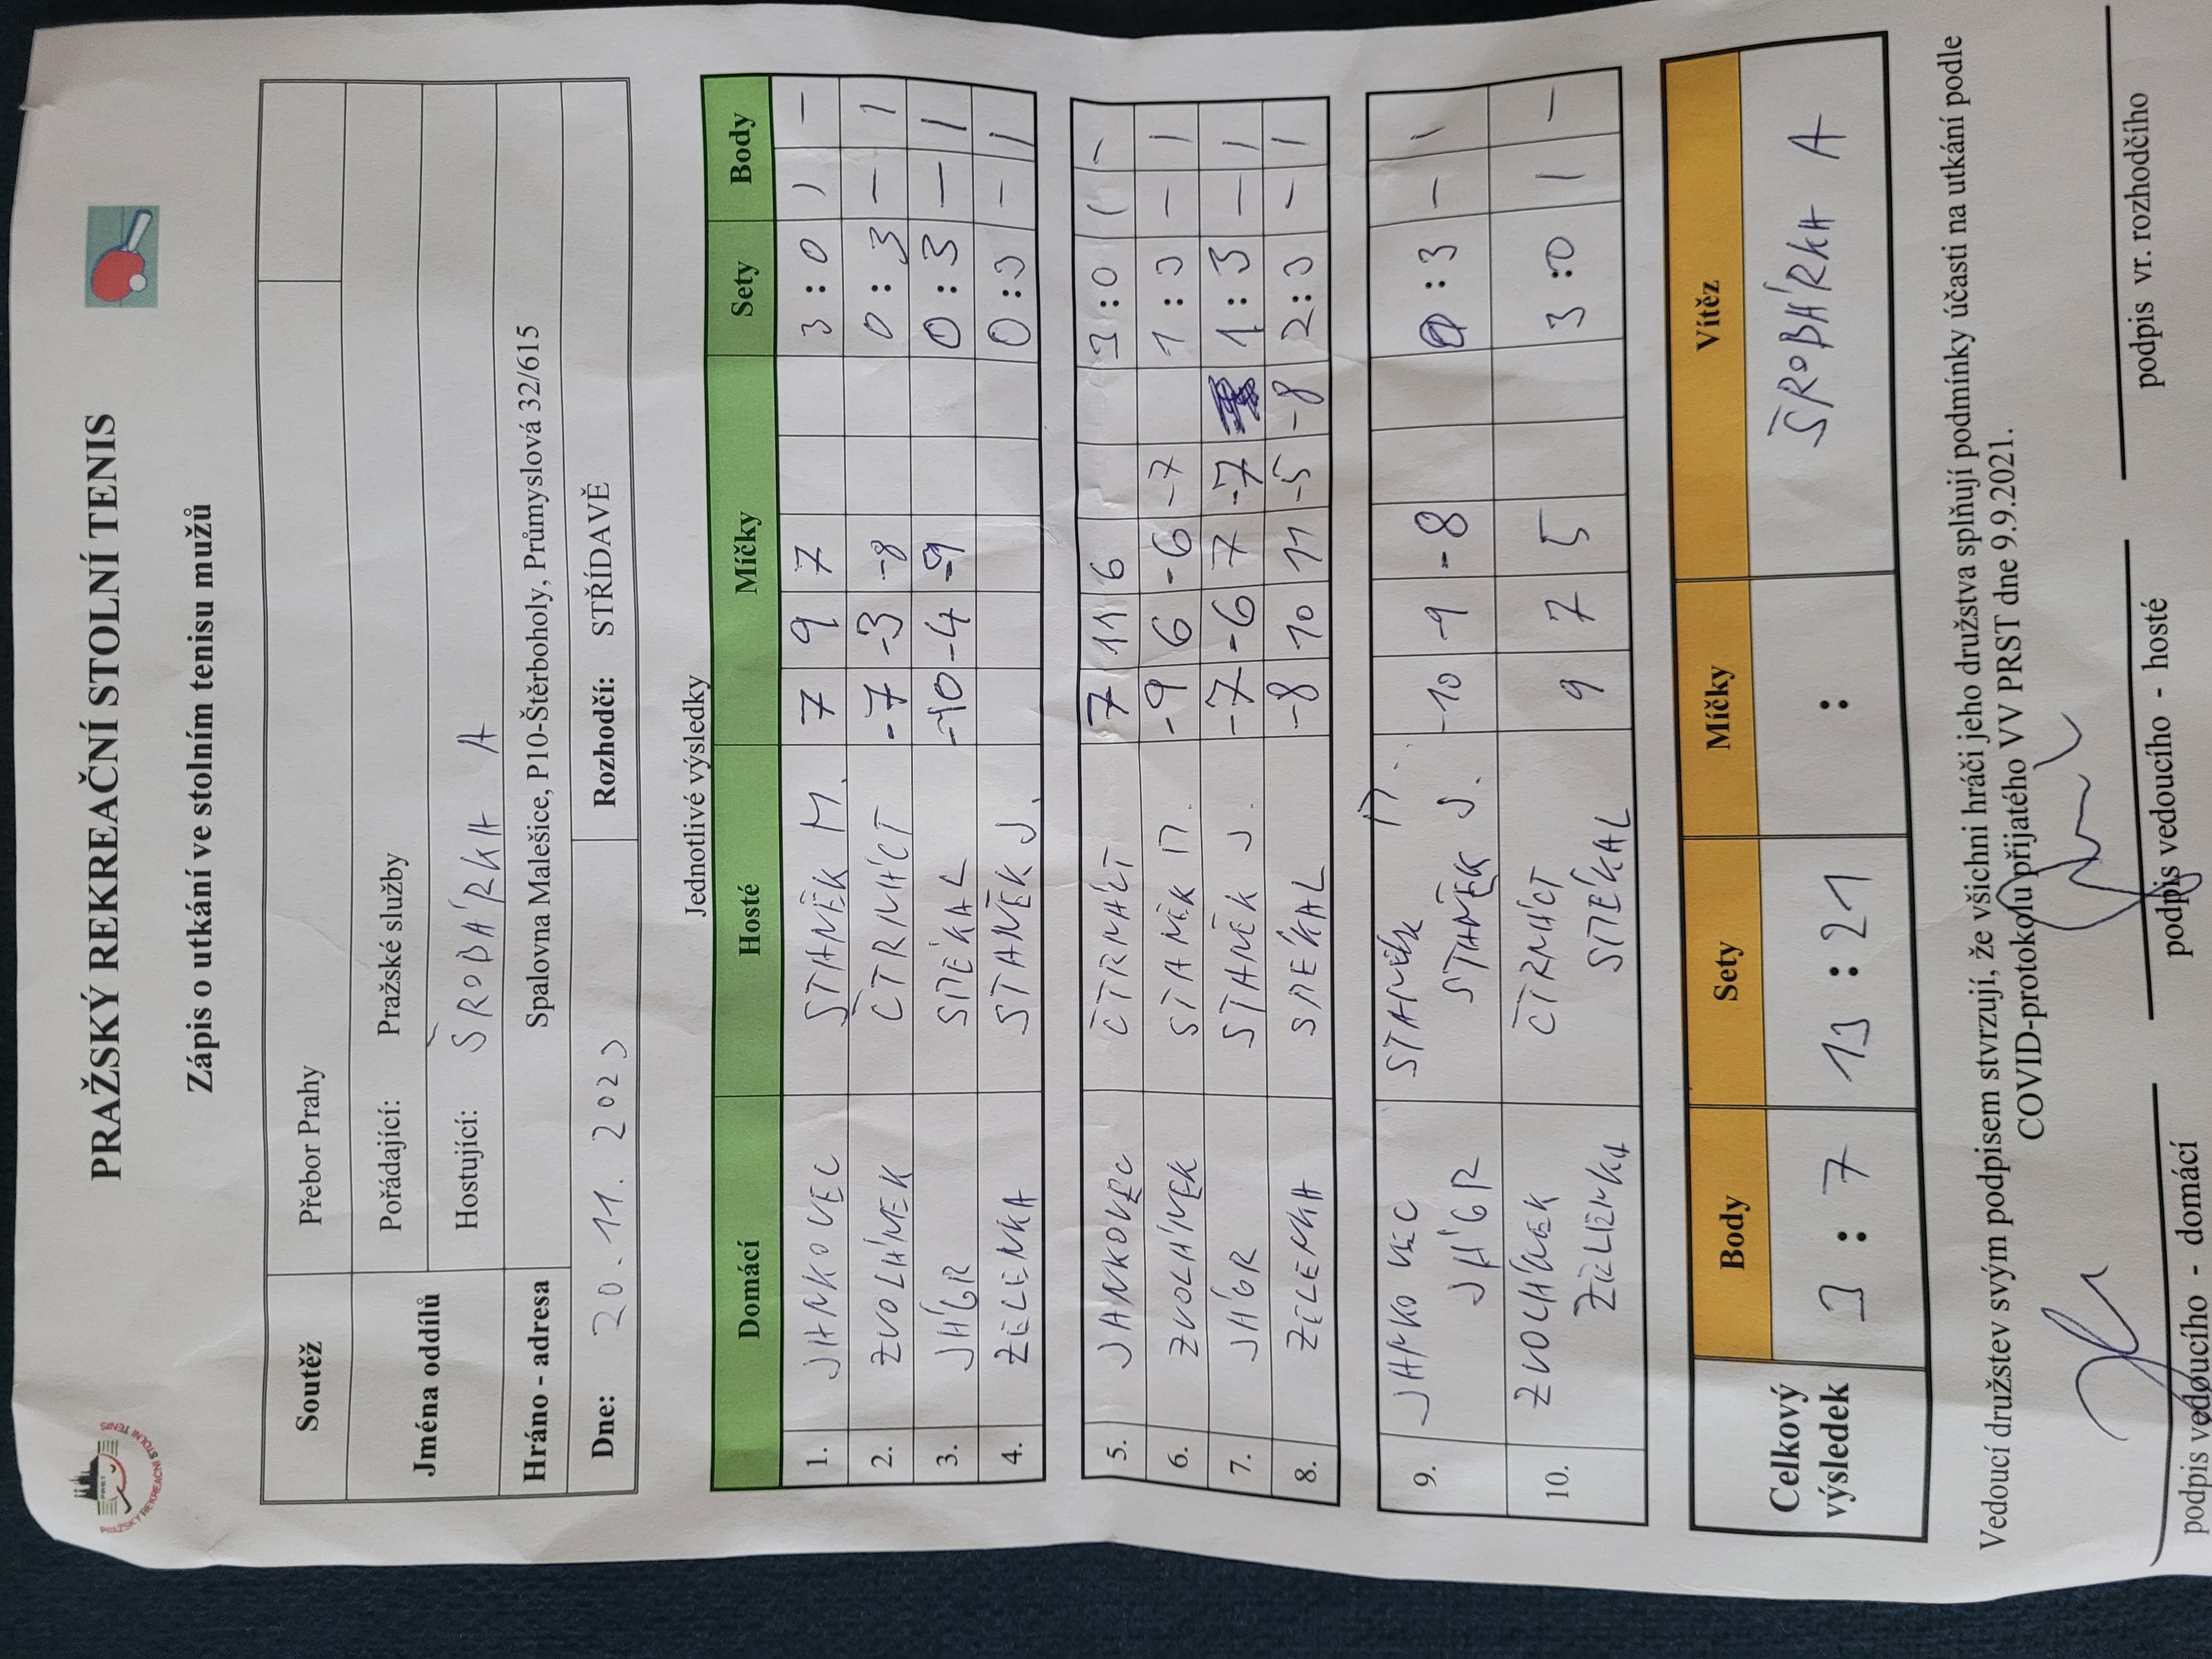 PRAŽSKÝ REKREAČNÍ STOLNÍ TENIS
Zápis o utkání ve stolním tenisu mužů
Soutěž Přebor Prahy
Jména oddílů Pořádající: Pražské služby
Hostující: ŠROBÁRKA A
Hráno - adresa Spalovna Malešice, P10-Štěrboholy, Průmyslová 32/615
Dne: 20.11.2023 Rozhodčí: STŘÍDAVĚ
Jednotlivé výsledky
Domácí Hosté Míčky Sety Body
1. JANKOVEC STANĚK M. 7 9 7 3:0 1 -
2. ZVOLÁNEK ČTRNÁCT -7 -3 -8 0:3 - 1
3. JÁGR STIÉKAL -10 -4 -9 0:3 - 1
4. ZELENKA STANĚK J. 0:3 - 1
5. JANKOVEC ČTRNÁCT 7 11 6 3:0 1 -
6. ZVOLÁNEK STANĚK M. -9 6 -6 -7 1:3 - 1
7. JÁGR STANĚK J. -7 -6 7 -7 1:3 - 1
8. ZELENKA -8 10 11 -5 -8 2:3 - 1
9. JANKOVEC STANĚK M.
JÁGR STANĚK J. -10 -9 -8 0:3 - 1
10. ZVOLÁNEK ČTRNÁCT
ZELENKA 9 7 5 3:0 1 -
Celkový výsledek Body Sety Míčky Vítěz
3:7 13:21 : ŠROBÁRKA A
Vedoucí družstev svým podpisem stvrzují, že všichni hráči jeho družstva splňují podmínky účasti na utkání podle
COVID-protokolu přijatého VV PRST dne 9.9.2021.
podpis vedoucího - domácí podpis vedoucího - hosté podpis vr. rozhodčího